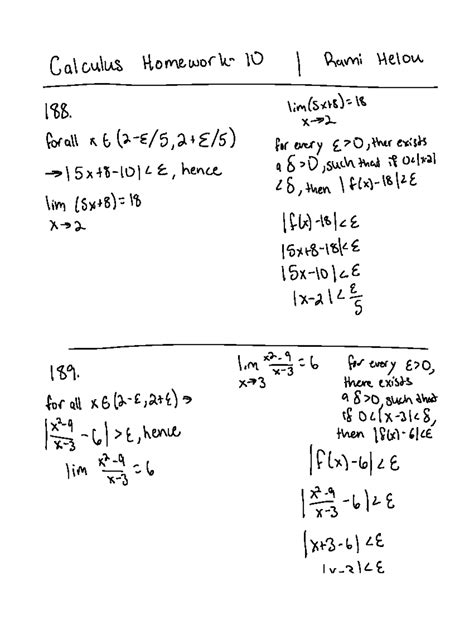 Calculus Homework-10 | Rami Helou
188.
for all x ∈ (2-ε/5, 2+ε/5)
→ |5x+8-10| < ε, hence
lim (5x+8) = 18
x→2
lim (5x+8) = 18
x→2
for every ε>0, ther exists
a δ>0, such that if 0<|x-2|
<δ, then |f(x)-18|<ε
|f(x)-18|<ε
|5x+8-18|<ε
|5x-10|<ε
|x-2|<ε/5
189.
for all x ∈ (2-ε, 2+ε) →
|x²-9/x-3 - 6| > ε, hence
lim x²-9/x-3 = 6
lim x²-9/x-3 = 6
x→3
for every ε>0,
there exists
a δ>0, such that
if 0<|x-3|<δ,
then |f(x)-6|<ε
|f(x)-6|<ε
|x²-9/x-3 - 6|<ε
|x+3-6|<ε
|x-3|<ε